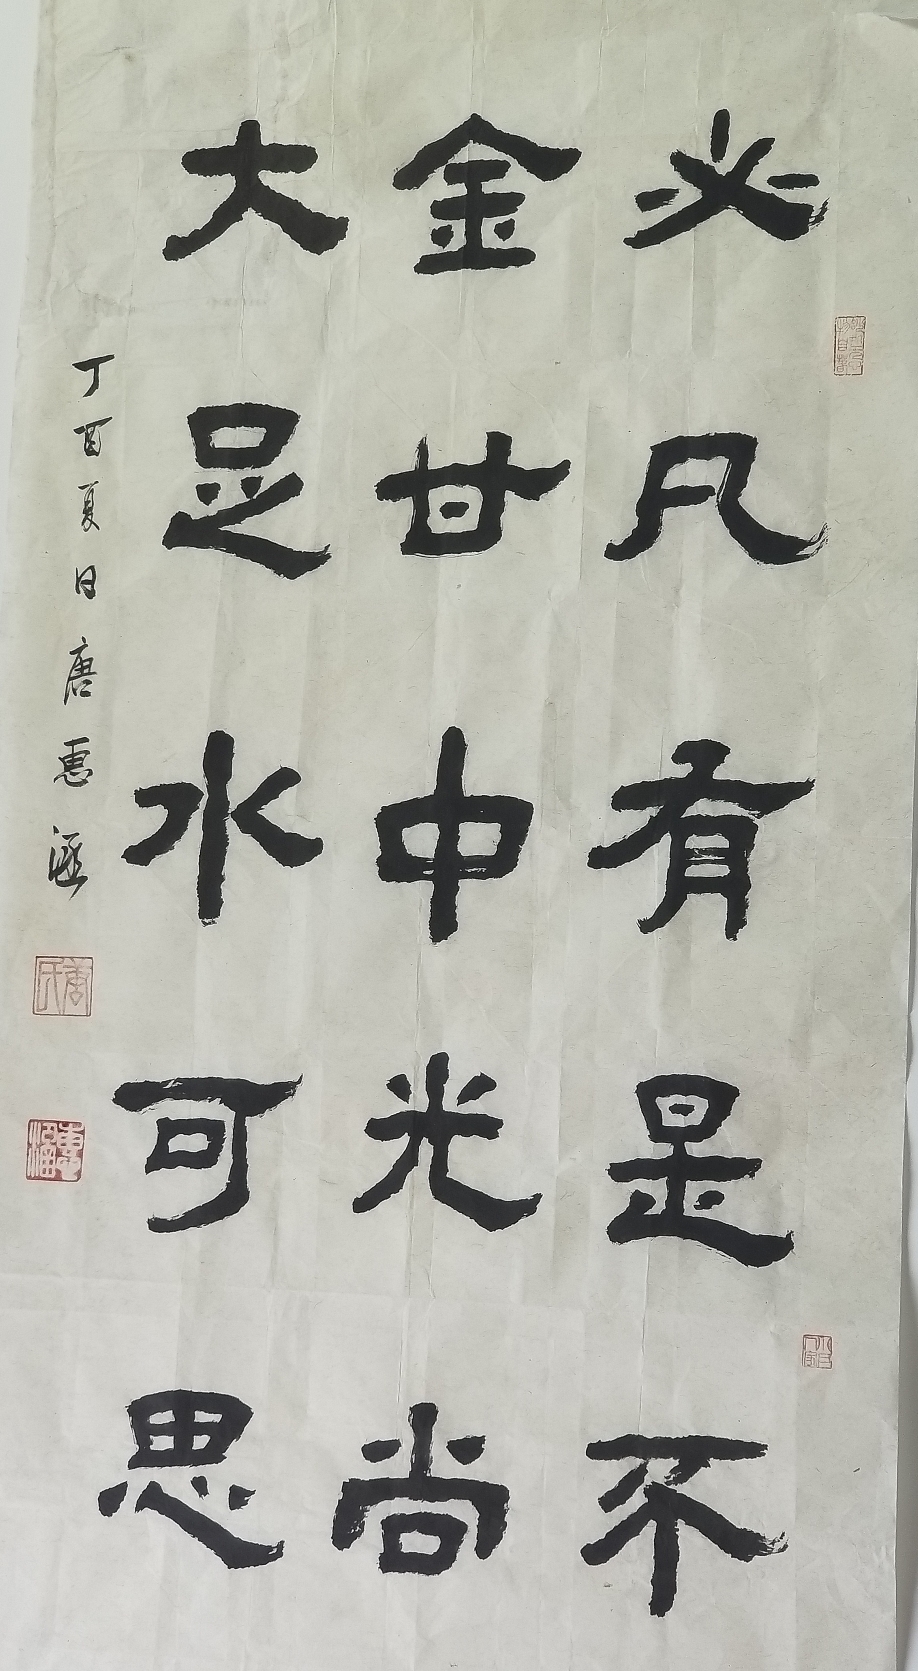 必凡有是不
金甘中光尚
大足水可思
丁酉夏日唐惠涵
唐氏